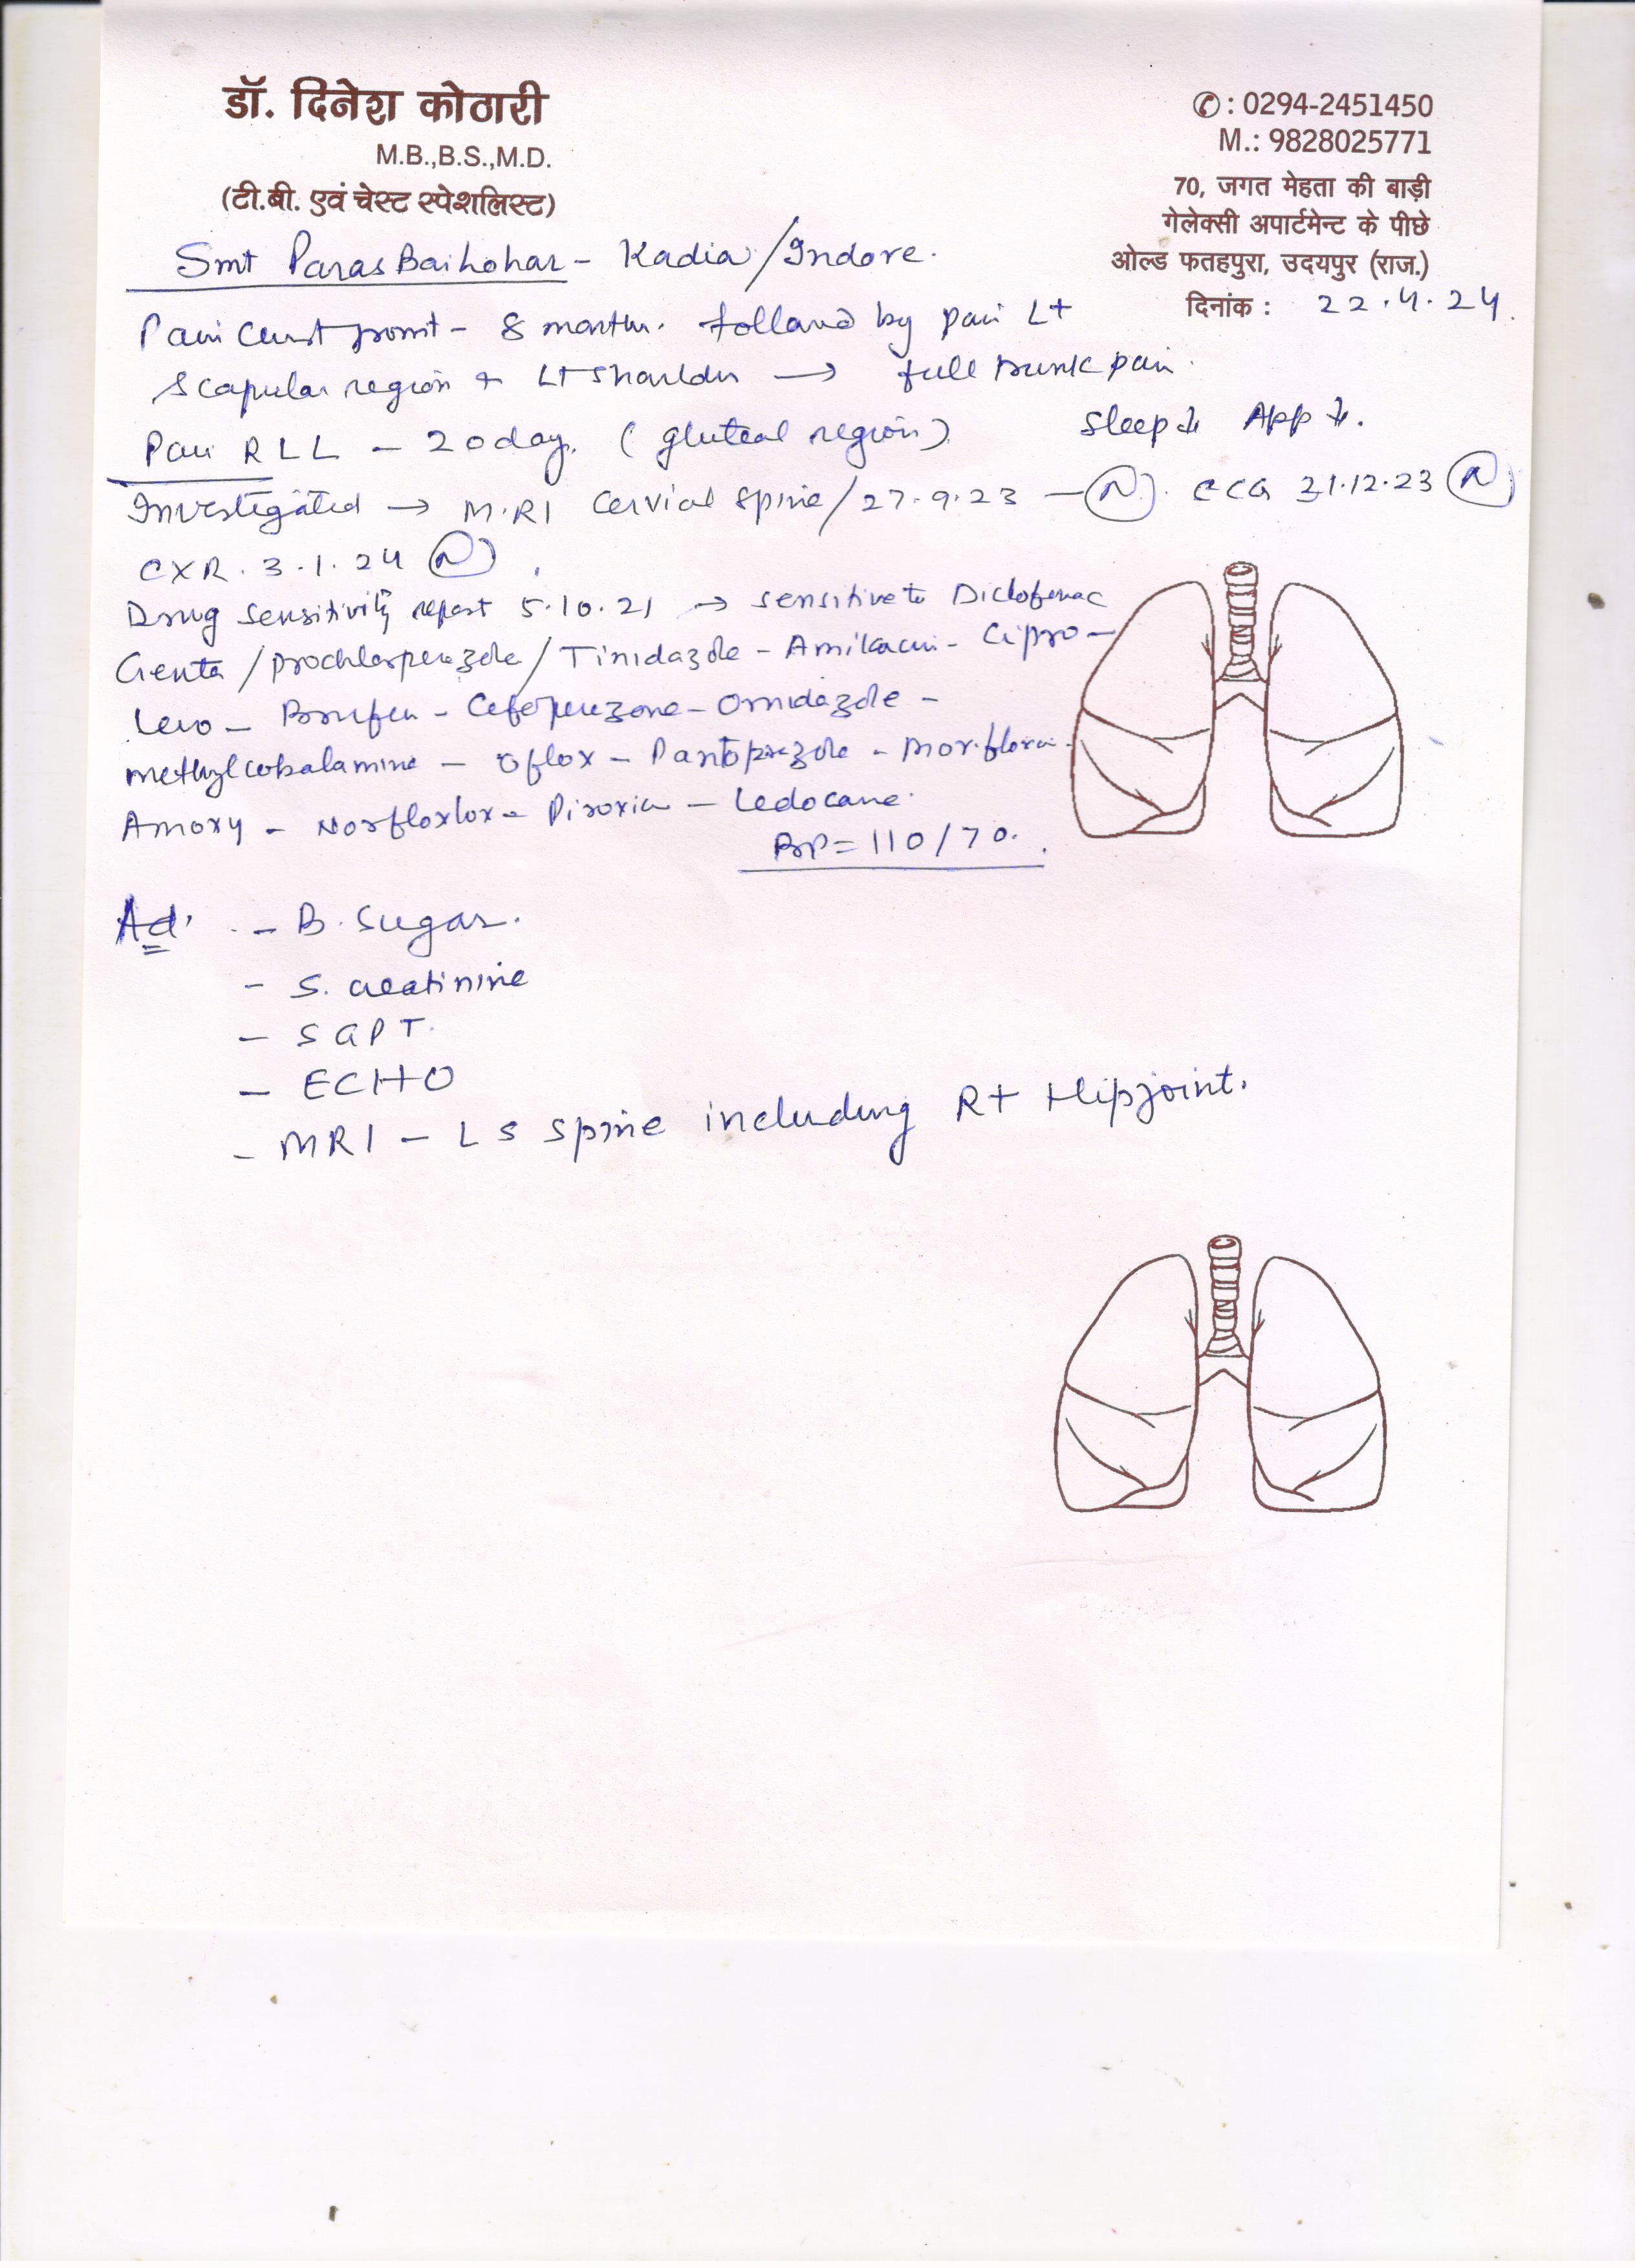 डॉ. दिनेश कोठारी
M.B.,B.S.,M.D.
(टी.बी. एवं चेस्ट स्पेशलिस्ट)
✆ : 0294-2451450
M.: 9828025771
70, जगत मेहता की बाड़ी
गेलेक्सी अपार्टमेन्ट के पीछे
ओल्ड फतहपुरा, उदयपुर (राज.)
दिनांक : 22.4.24.
Smt Paras Bai - Kadia/Indore.
Pain - 8 months. follows by pain Lt
Scapular region & Lt shoulder → full trunk pain.
Pain RLL - 20 day. (gluteal region) Sleep↓ App↓.
Investigated → M.RI Cervial spine/27.9.23 - (N). ECG 31.12.23 (N)
CXR. 3.1.24 (N)
Drug sensitivity report 5.10.21 → sensitive to Diclofenac
Genta / prochlorperazole / Tinidazole - Amikacin - Cipro -
Levo - Brufen - Cefoperazone - Ornidazole -
methylcobalamine - oflox - Pantoprazole -
Amoxy - Norfloxlox - Piroxia - Ledocane.
BP = 110/70.
Ad. - B. Sugar.
- S. creatinine
- SGPT.
- ECHO
- MRI - LS spine including Rt Hip joint.